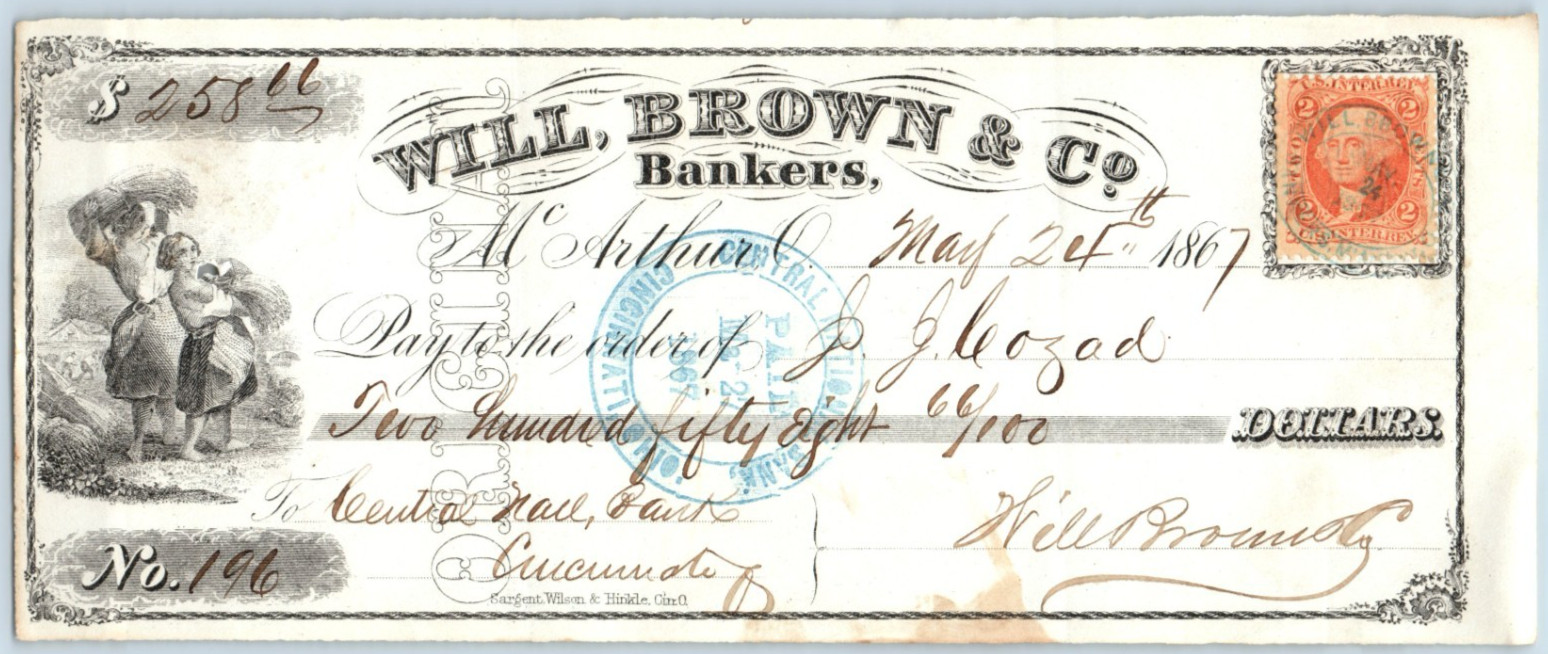 $ 258 66
WILL, BROWN & Co.
Bankers,
Mc Arthur, O. May 24th 1867
Pay to the order of J. J. Cozad
Two hundred fifty Eight 66/100 DOLLARS.
To Central Natl, Bank
Cincinnati O
Will Brown & Co
No. 196
Sargent, Wilson & Hinkle, Cin. O.
ORIGINAL
CENTRAL NATIONAL BANK,
CINCINNATI, O.
PAID
1867
U.S. INTER. REV.
2 2
TWO CENTS
2 2
U.S. INTER. REV.
WILL BROWN
24